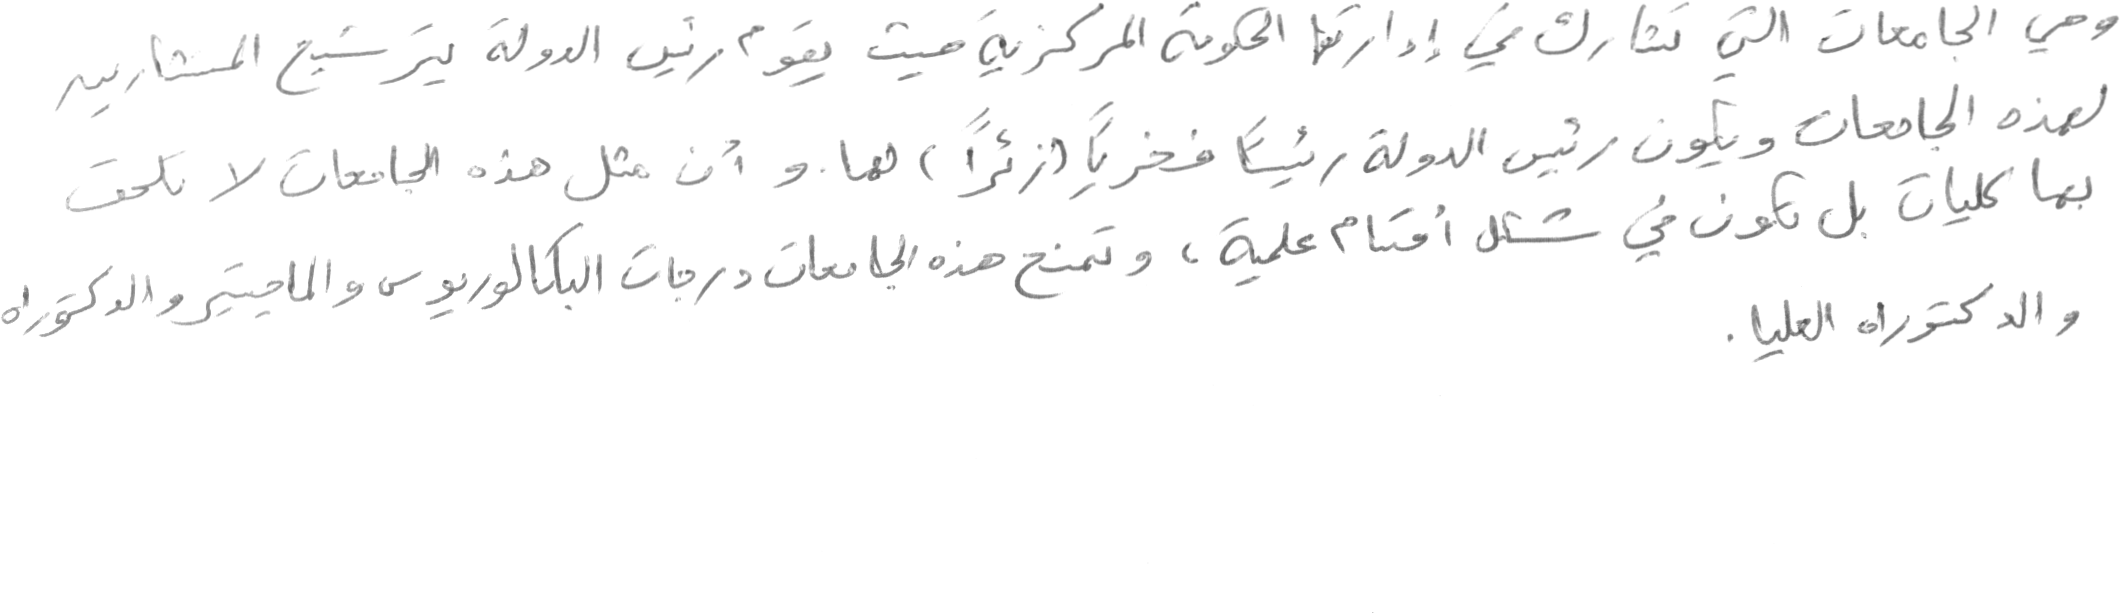 وهي الجامعات التي تشارك في إدارتها الحكومة المركزية حيث يقوم رئيس الدولة بترشيح المستشارين
لهذه الجامعات ويكون رئيس الدولة رئيسًا فخريًا (زئرًا) لها. و أن مثل هذه الجامعات لا تلحق
بها كليات بل تكون في شكل أقسام علمية، وتمنح هذه الجامعات درجات البكالوريوس والماجيتير والدكتوراه
والدكتوراه العليا.